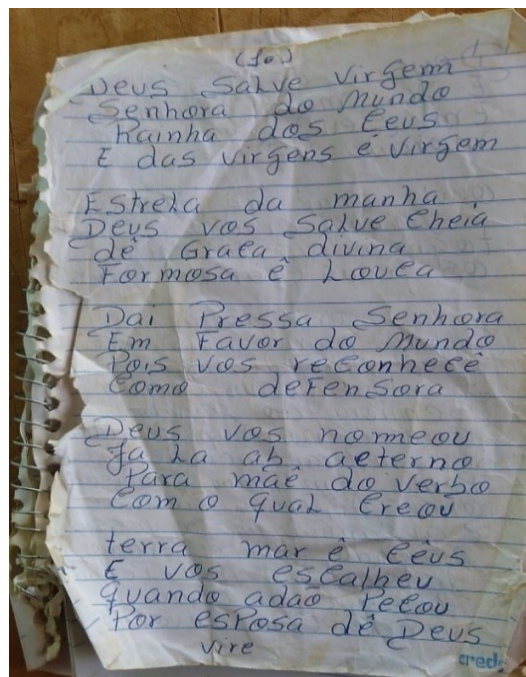 (fo)
Deus Salve virgem
Senhora do Mundo
Rainha dos Ceus
E das virgens é virgem
Estrela da manha
Deus vos Salve Cheia
dê Graca divina
Formosa ê Louca
Dai Pressa Senhora
Em Favor do Mundo
Pois vos reconhecê
Como defensora
Deus vos nomeou
Ja La ab aeterno
Para mãe do verbo
Com o qual Creou
terra mar ê Cêus
E vos escalheu
quando adao Pecou
Por esposa dê Deus
vire
cred